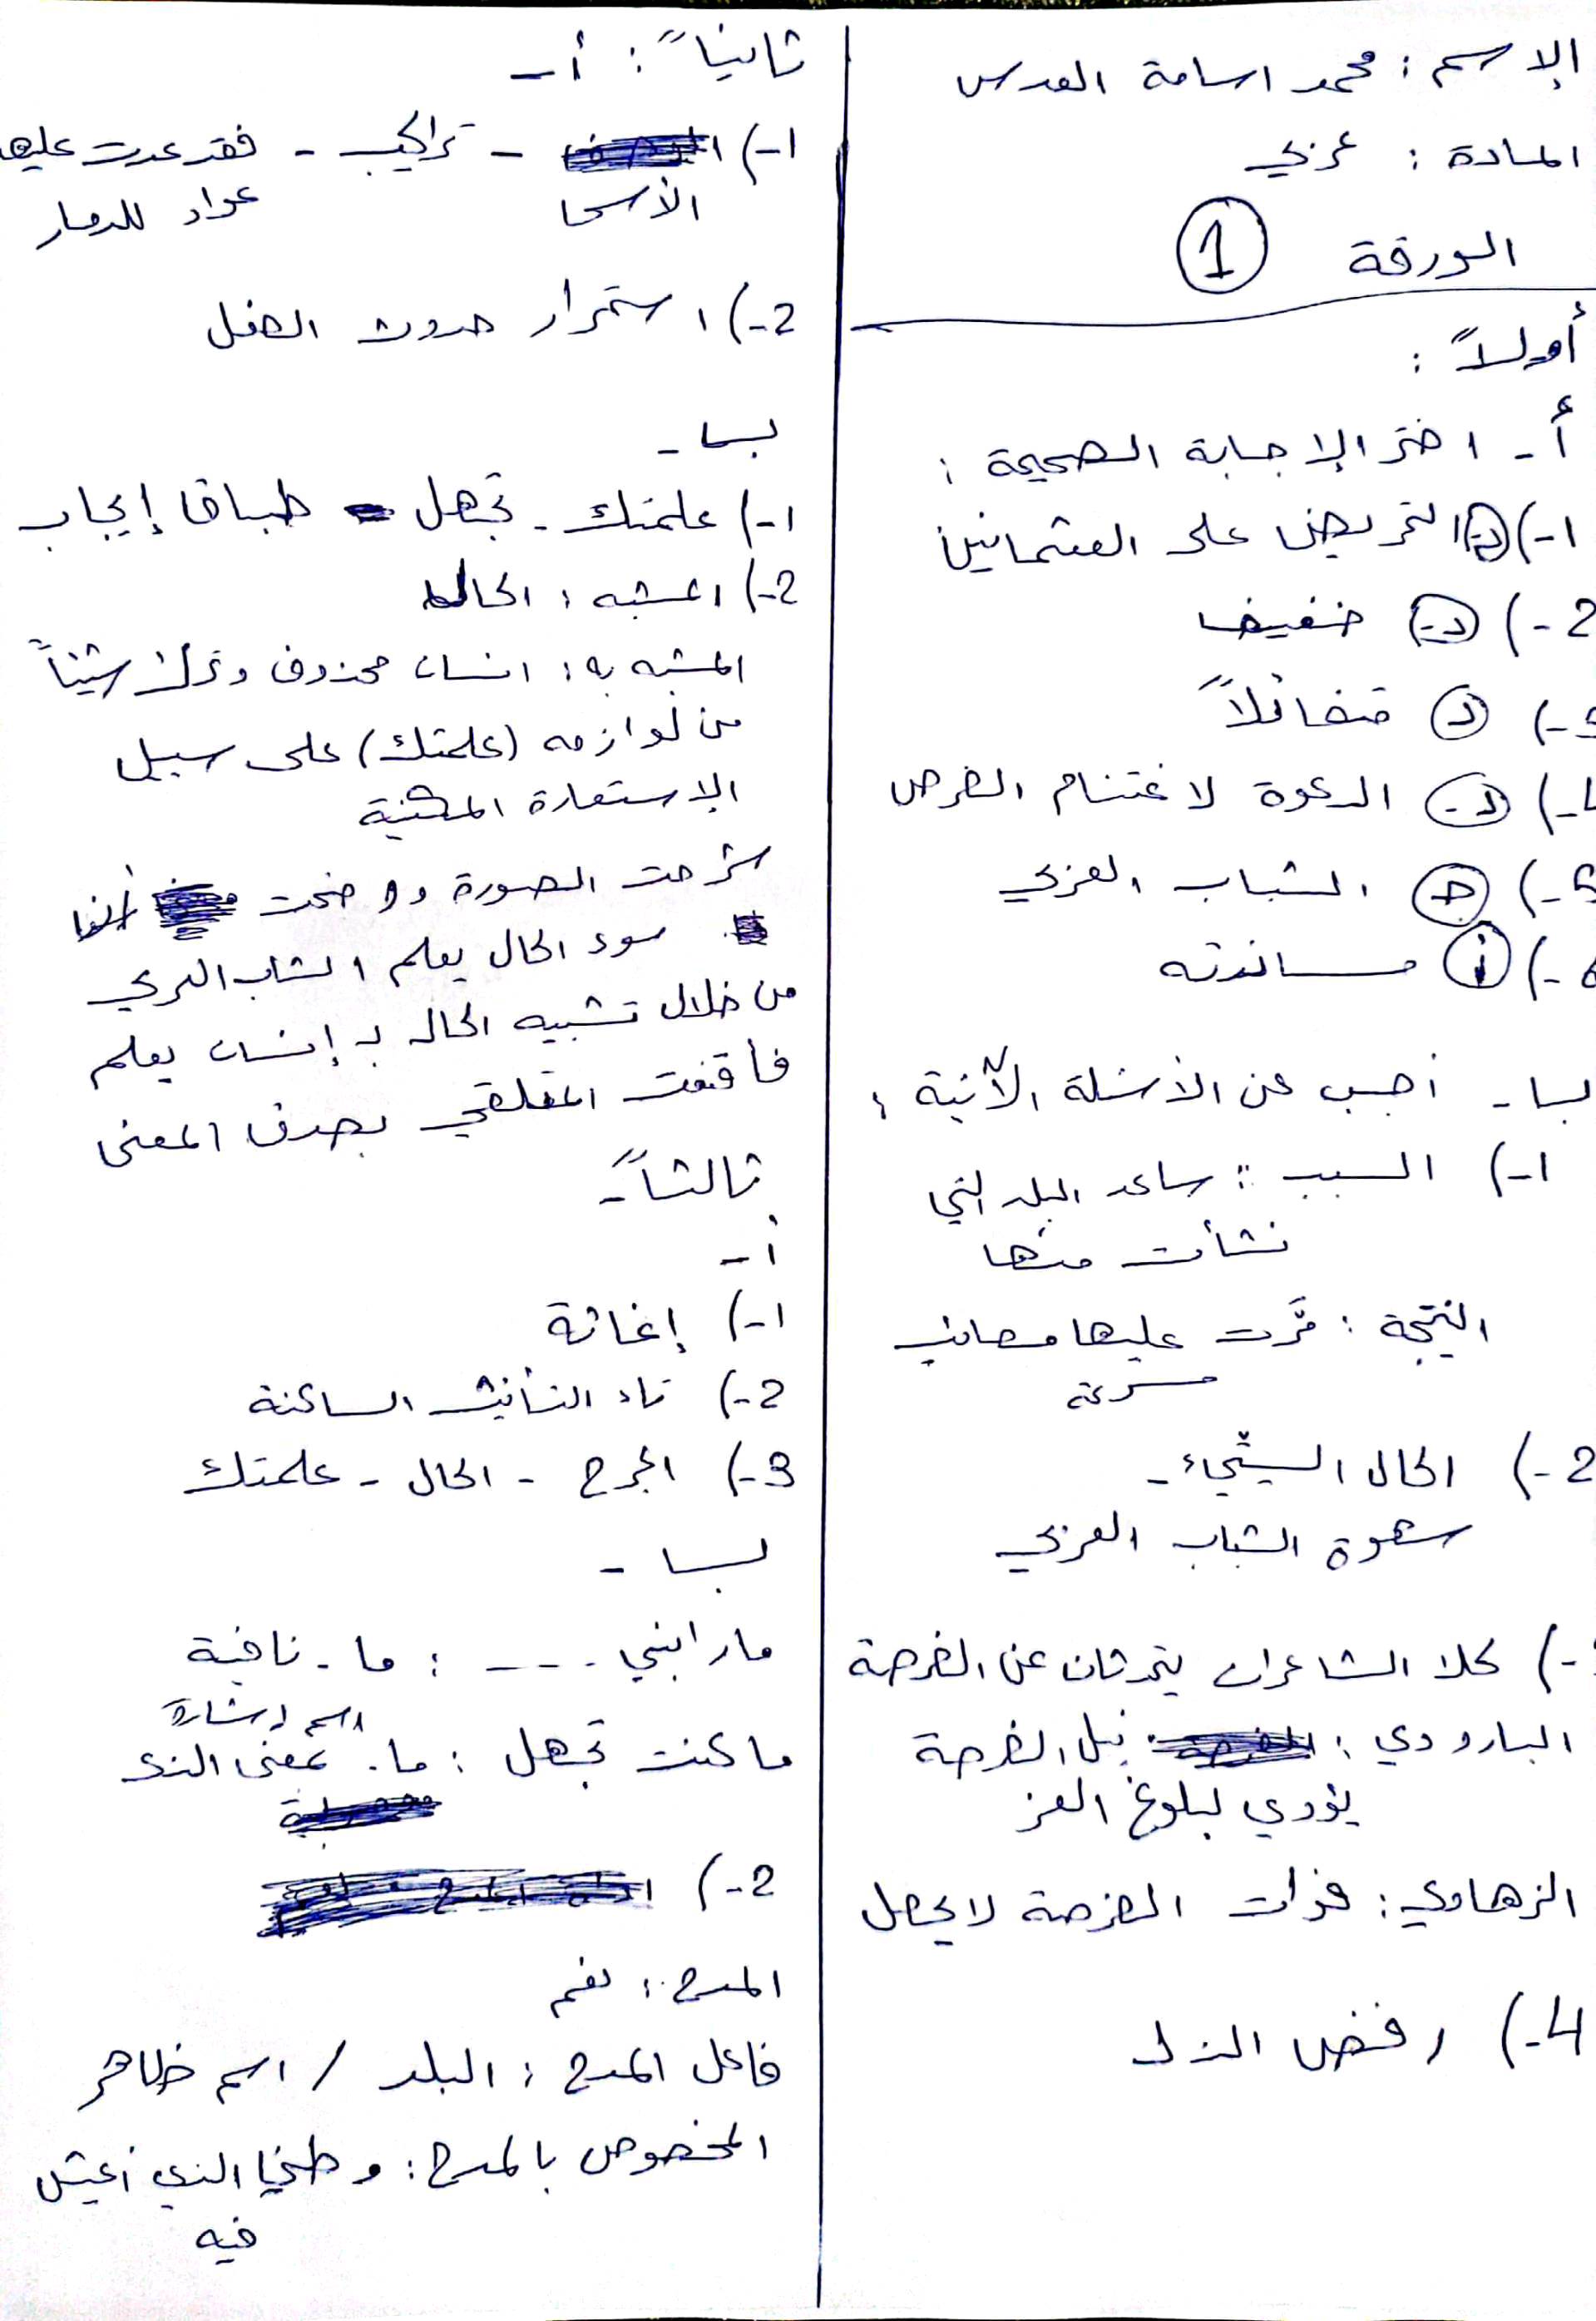 الإسم : محمد اسامة العدس
المادة : عربي
الورقة 1
أولاً :
أ - اختر الإجابة الصحيحة :
1-) د- التحريض على العثمانيين
2-) د- خفيف
د متفائلاً
4-) د- الدعوة لاغتنام الفرص
5-) ج الشباب العربي
6-) أ مساندته
ب - أجب عن الأسئلة الآتية :
1-) السبب : ساعد البلد التي
نشأت منها
النتيجة : مرَّت عليها مصائب
مسرعة
2-) الحال السيّء -
شهوة الشباب العربي
-) كلا الشاعران يتحدثان عن الفرصة
البارودي : نيل الفرصة
يؤدي لبلوغ العز
الزهاوي : فوات الفرصة لا يحصل
4-) رفض الذل
ثانياً : أ -
1-) الأسى - تراكيب - فقد عدت عليها
عواد للدمار
2-) استمرار حدوث الفعل
ب -
1-) علمتك - تجهل طباق إيجاب
2-) المشبه : الحال
المشبه به : انسان محذوف وترك شيئاً
من لوازمه (علمتك) على سبيل
الإستعارة المكنية
شرحت الصورة ووضحت
سوء الحال يعلم الشاب العربي
من خلال تشبيه الحال بـ إنسان يعلم
فأقنعت المتلقي بصدق المعنى
ثالثاً -
أ -
1-) إغاثة
2-) تاء التأنيث الساكنة
3-) الجرح - الحال - علمتك
ب -
ما رابني - - - : ما - نافية
اسم إشارة
ما كنت تجهل : ما - بمعنى الذي
2-)
المدح : نعم
فاعل المدح : البلد / اسم ظاهر
المخصوص بالمدح : وطني الذي أعيش
فيه